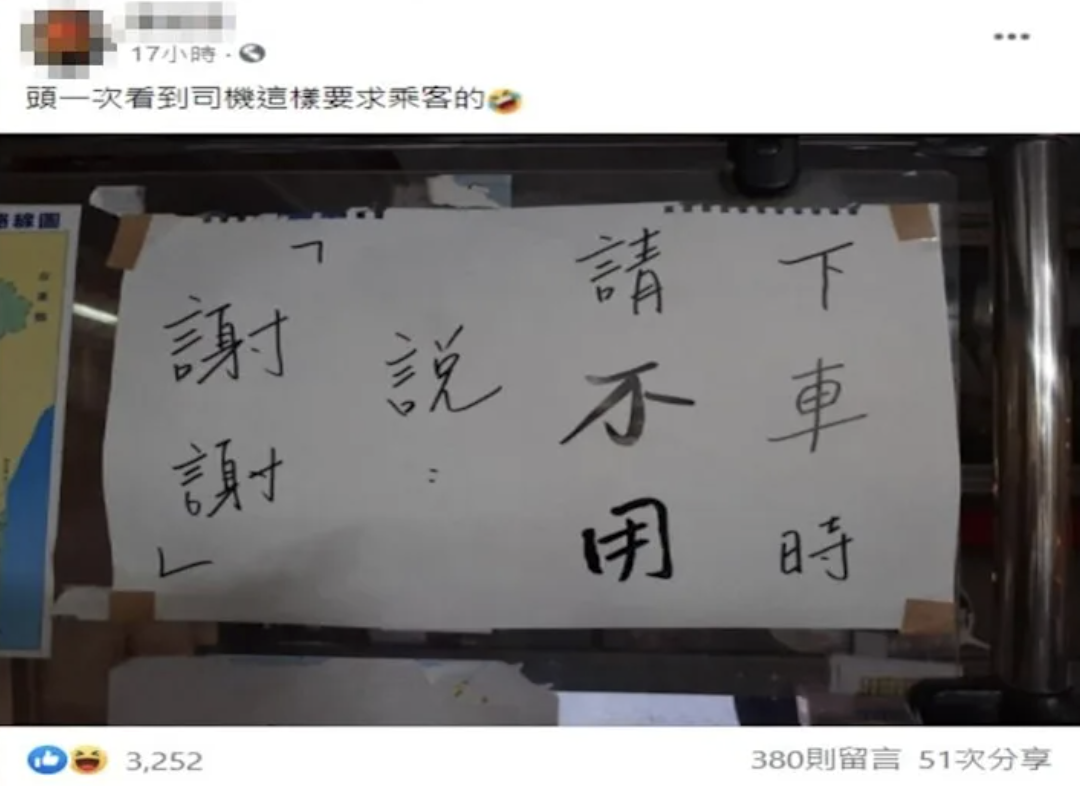 17小時
頭一次看到司機這樣要求乘客的🤣
線圖
下車時
請不用
説：
「謝謝」
3,252
380則留言 51次分享